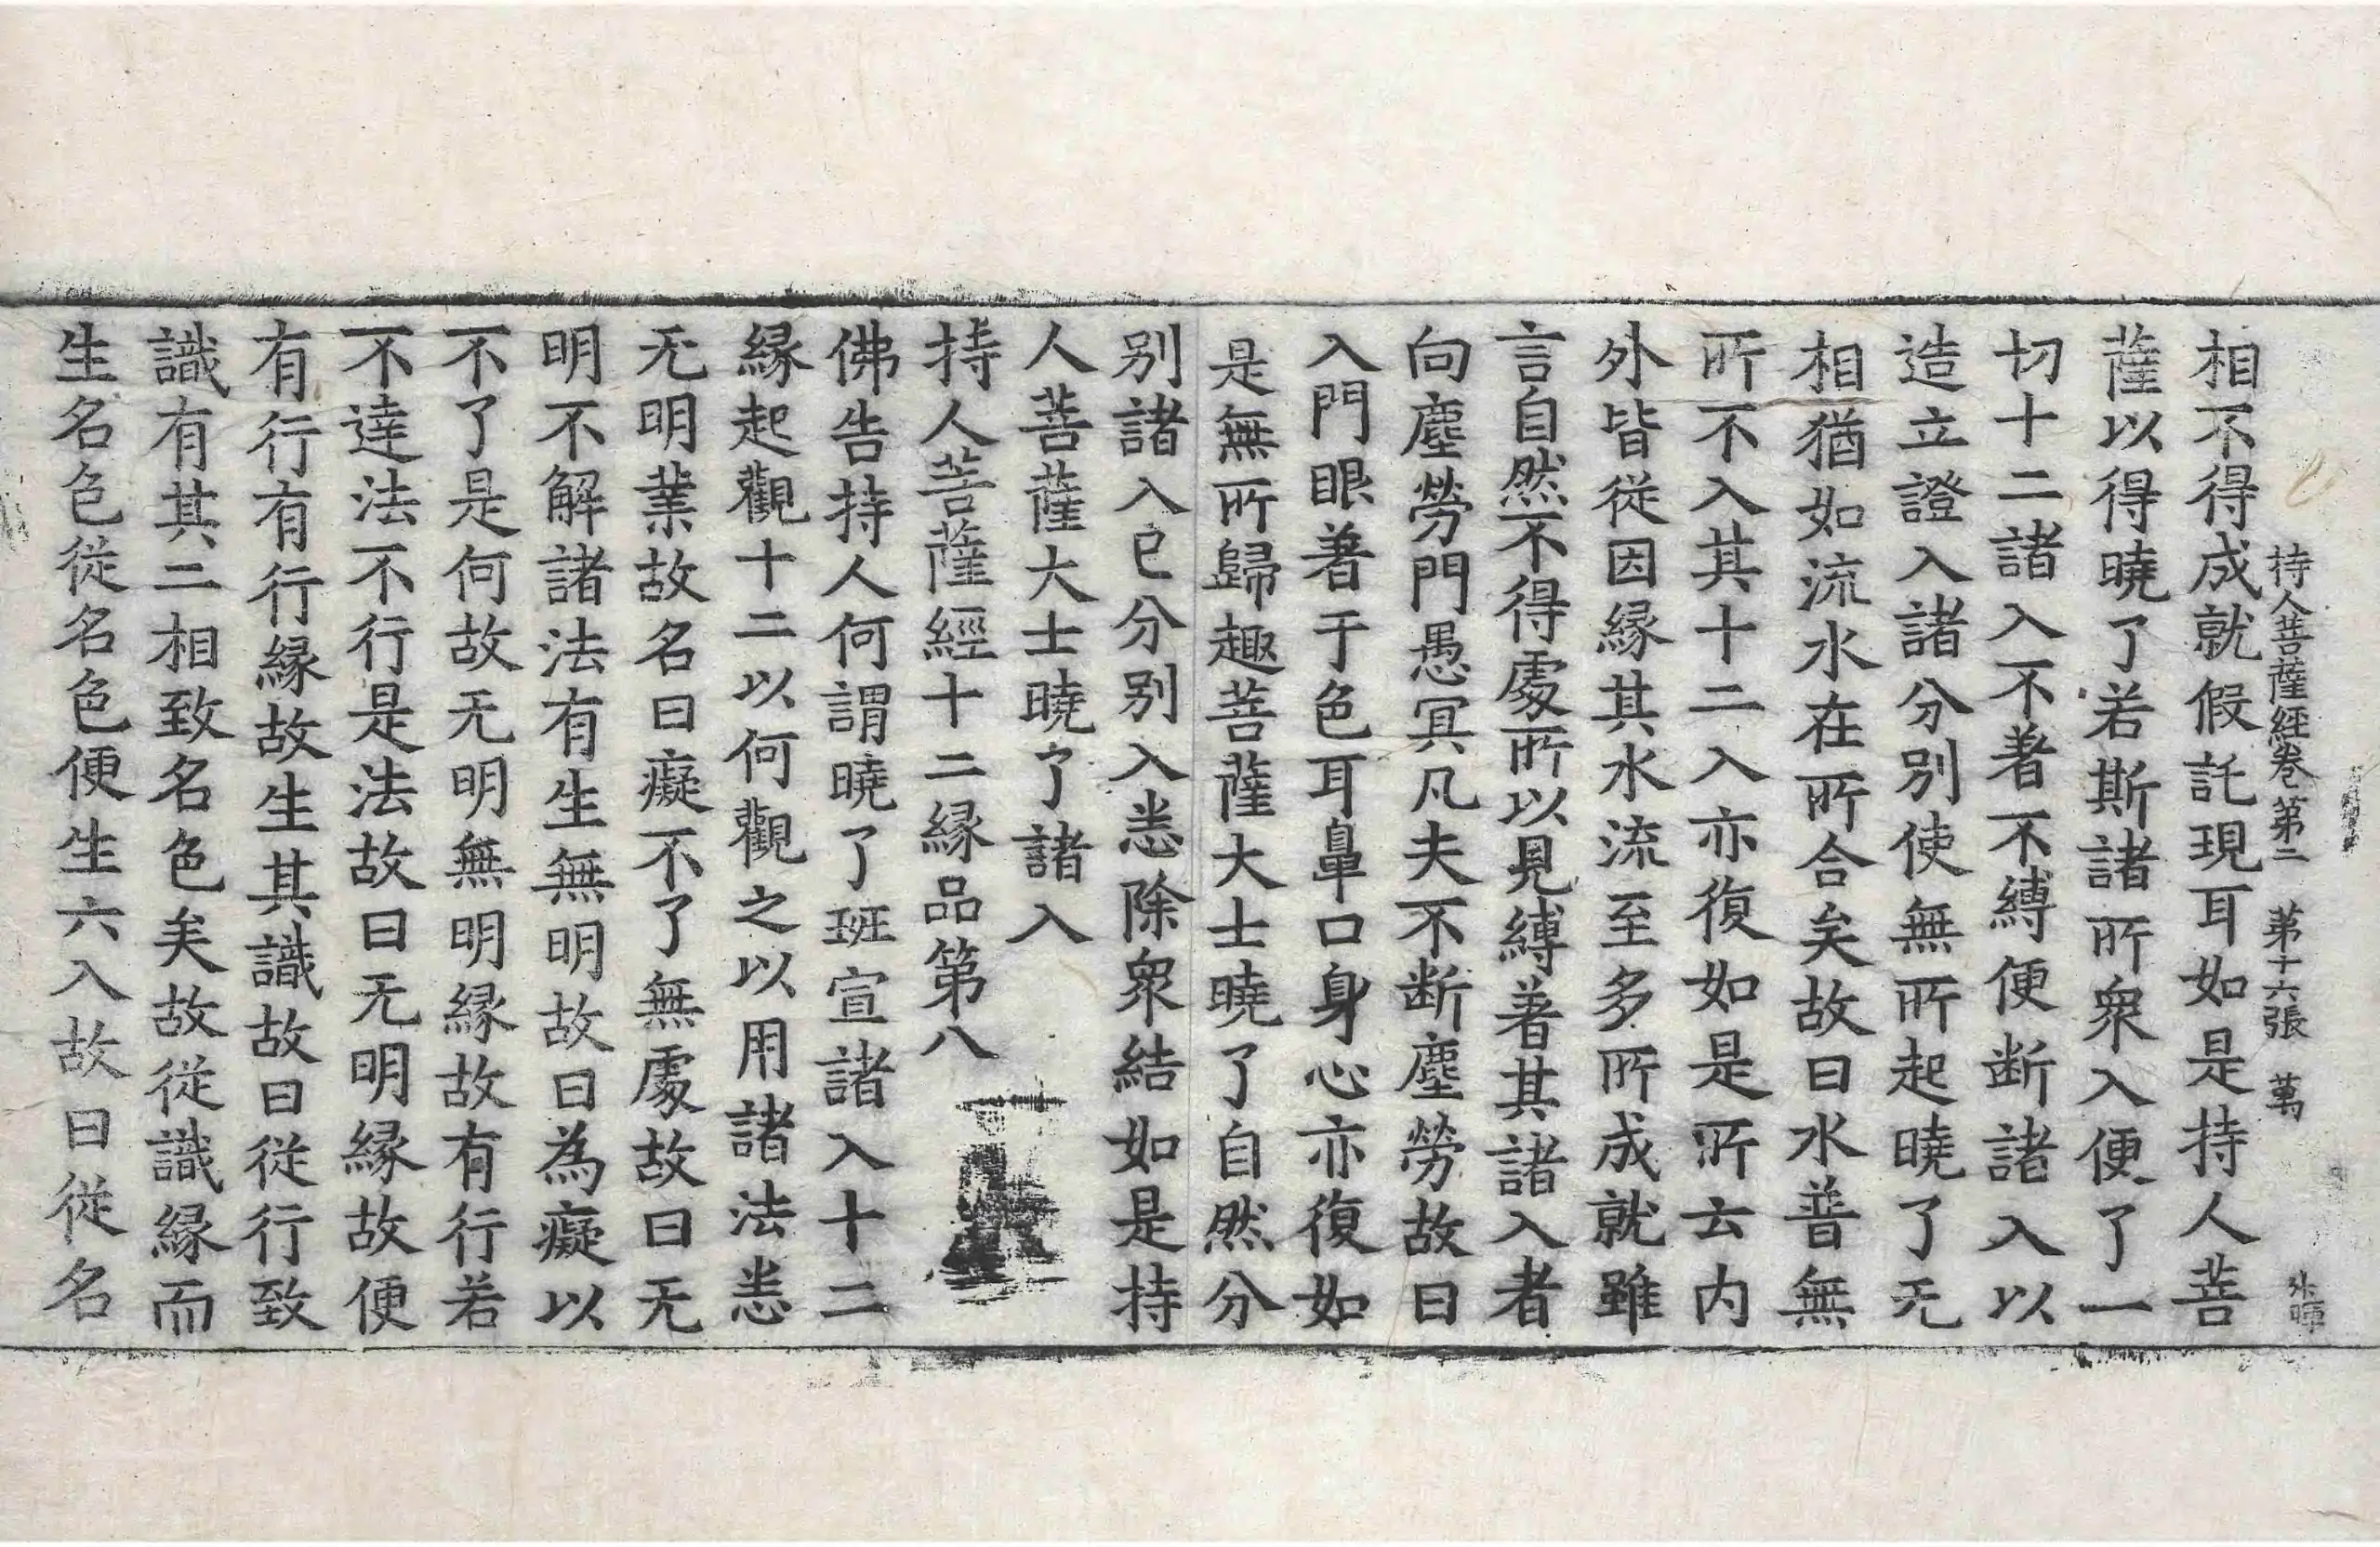 持人菩薩經卷第二 第十六張 萬
相不得成就假託現耳如是持人菩
薩以得曉了若斯諸所衆入便了一
切十二諸入不著不縛便断諸入以
造立證入諸分別使無所起曉了无
相猶如流水在所合矣故曰水普無
所不入其十二入亦復如是所云内
外皆從因縁其水流至多所成就雖
言自然不得處所以見縛著其諸入者
向塵勞門愚冥凡夫不断塵勞故曰
入門眼著于色耳鼻口身心亦復如
是無所歸趣菩薩大士曉了自然分
別諸入已分別入悉除衆結如是持
人菩薩大士曉了諸入
持人菩薩經十二縁品第八
佛告持人何謂曉了班宣諸入十二
縁起觀十二以何觀之以用諸法悉
无明業故名曰癡不了無處故曰无
明不解諸法有生無明故曰為癡以
不了是何故无明無明縁故有行若
不達法不行是法故曰无明縁故便
有行有行縁故生其識故曰從行致
識有其二相致名色矣故從識縁而
生名色從名色便生六入故曰從名